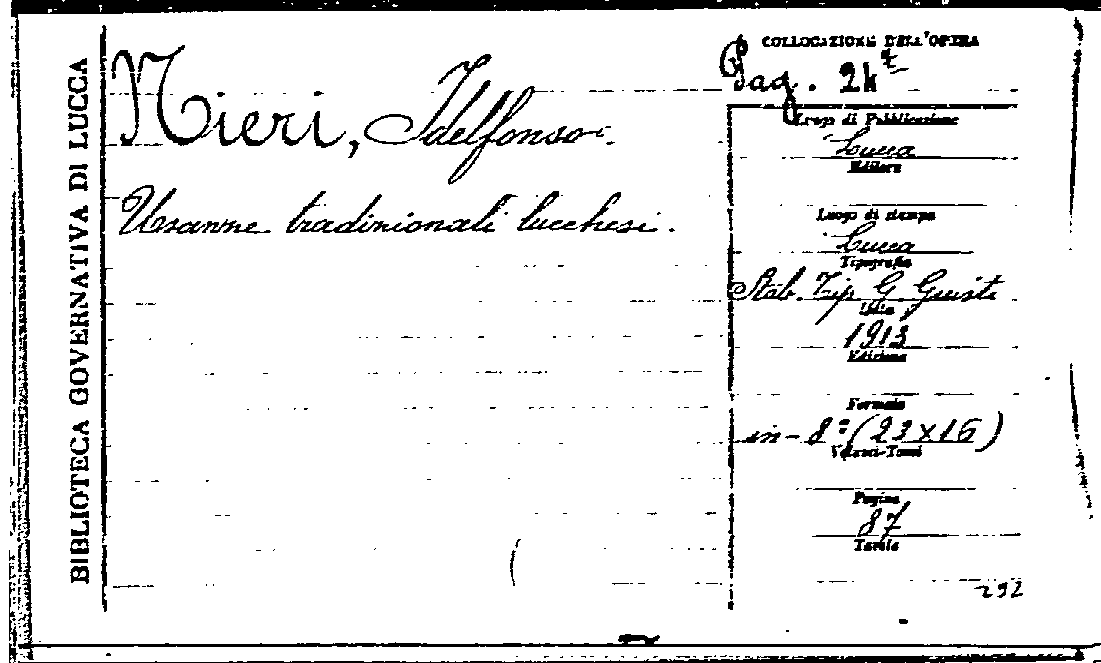 BIBLIOTECA GOVERNATIVA DI LUCCA
Nieri, Idelfonso.
Usanze tradizionali lucchesi.
COLLOCAZIONE DELL'OPERA
Pag. 24
Luogo di Pubblicazione
Lucca
Editore
Luogo di stampa
Lucca
Tipografia
Stab. Tip. G. Giusti
1913
Edizione
Formato
in-8° (23x16)
Volumi-Tomi
Pagine
87
Tavole
292